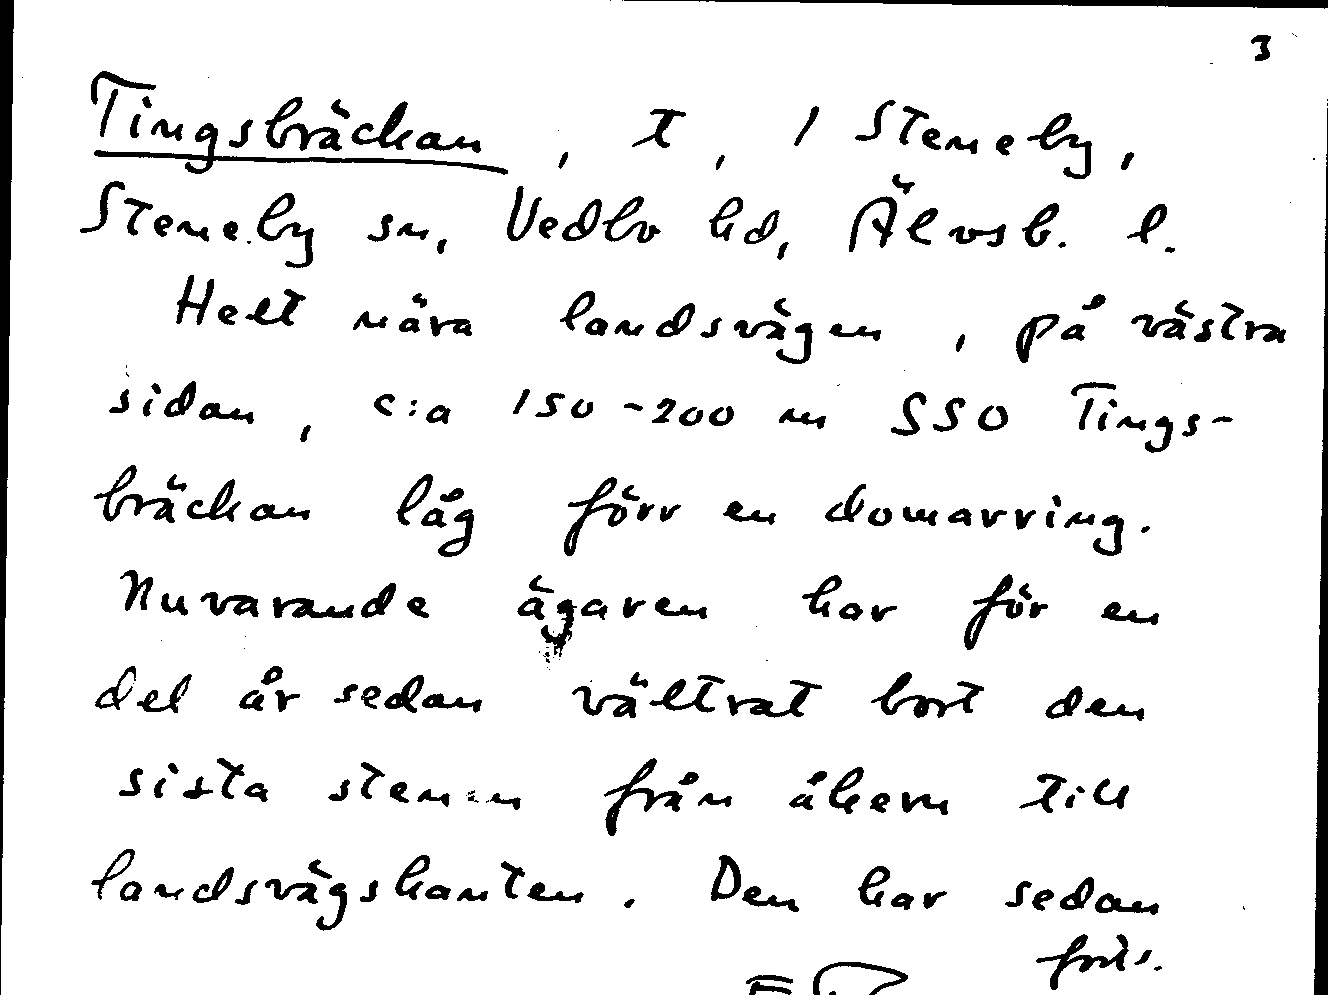 3
Tingsbräckan, t, 1 Steneby,
Steneby sn, Vedbo hd, Älvsb. l.
Helt nära landsvägen, på västra
sidan, c:a 150-200 m SSO Tings-
bräckan låg förr en domarring.
Nuvarande ägaren har för en
del år sedan vältrat bort den
sista stenen från åkern till
landsvägskanten. Den har sedan
forts.